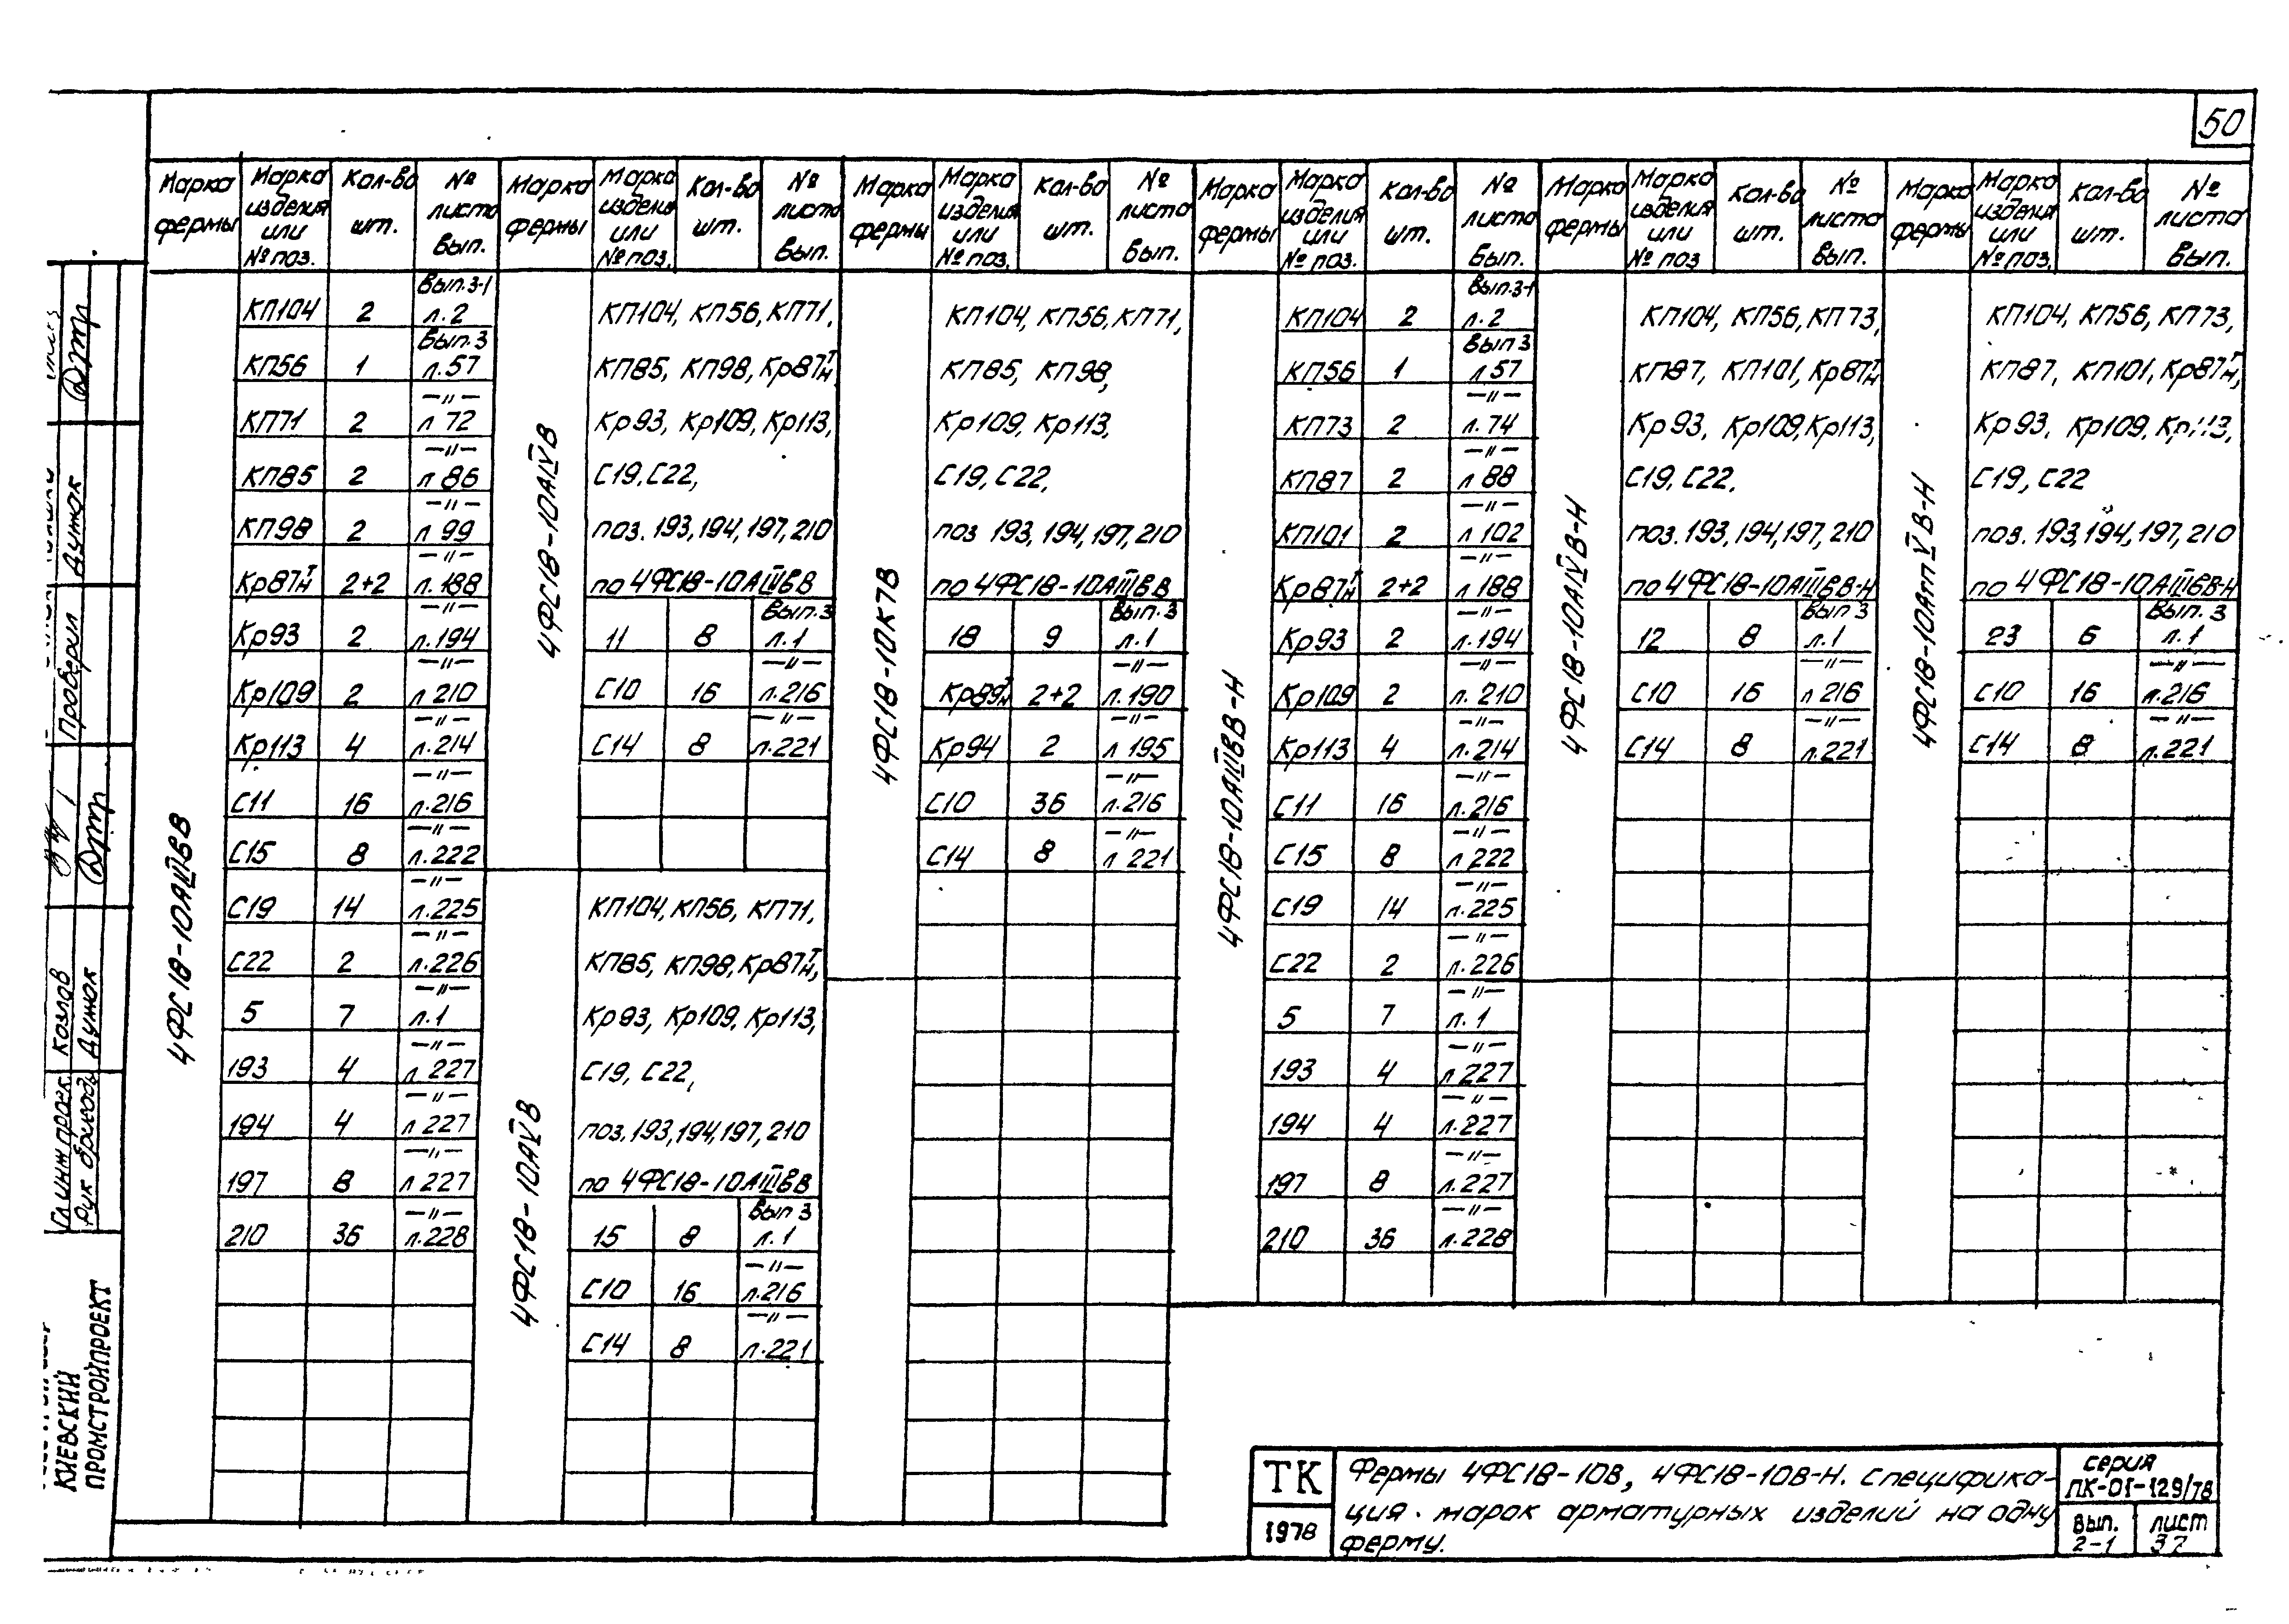 50
Марка фермы | Марка изделия или № поз. | Кол-во шт. | № листа вып.
4ФС18-10АIIIвВ
КП104 | 2 | Вып.3-1 л.2
КП56 | 1 | Вып.3 л.57
КП71 | 2 | —"— л 72
КП85 | 2 | —"— л 86
КП98 | 2 | —"— л 99
Кр87т/н | 2+2 | —"— л.188
Кр93 | 2 | —"— л.194
Кр109 | 2 | —"— л 210
Кр113 | 4 | —"— л.214
С11 | 16 | —"— л.216
С15 | 8 | —"— л.222
С19 | 14 | —"— л.225
С22 | 2 | —"— л.226
5 | 7 | —"— л.1
193 | 4 | —"— л 227
194 | 4 | —"— л 227
197 | 8 | —"— л 227
210 | 36 | —"— л.228
Марка фермы | Марка изделия или № поз. | Кол-во шт. | № листа вып.
4ФС18-10АIVВ
КП104, КП56, КП71,
КП85, КП98, Кр87т/н
Кр93, Кр109, Кр113,
С19, С22,
поз. 193, 194, 197, 210
по 4ФС18-10АIIIвВ
11 | 8 | Вып.3 л.1
С10 | 16 | —"— л.216
С14 | 8 | —"— л.221
4ФС18-10АVВ
КП104, КП56, КП71,
КП85, КП98, Кр87т/н,
Кр93, Кр109, Кр113,
С19, С22,
поз. 193, 194, 197, 210
по 4ФС18-10АIIIвВ
15 | 8 | Вып 3 л.1
С10 | 16 | —"— л.216
С14 | 8 | —"— л.221
Марка фермы | Марка изделия или № поз. | Кол-во шт. | № листа вып.
4ФС18-10К7В
КП104, КП56, КП71,
КП85, КП98,
Кр109, Кр113,
С19, С22,
поз 193, 194, 197, 210
по 4ФС18-10АIIIвВ
18 | 9 | Вып.3 л.1
Кр89т/н | 2+2 | —"— л.190
Кр94 | 2 | —"— л 195
С10 | 36 | —"— л.216
С14 | 8 | —"— л 221
Марка фермы | Марка изделия или № поз. | Кол-во шт. | № листа Вып.
4ФС18-10АIIIвВ-Н
КП104 | 2 | Вып.3-1 л.2
КП56 | 1 | Вып 3 л 57
КП73 | 2 | —"— л.74
КП87 | 2 | —"— л 88
КП101 | 2 | —"— л 102
Кр87т/н | 2+2 | —"— л 188
Кр93 | 2 | —"— л.194
Кр109 | 2 | —"— л. 210
Кр113 | 4 | —"— л.214
С11 | 16 | —"— л.216
С15 | 8 | —"— л 222
С19 | 14 | —"— л.225
С22 | 2 | —"— л.226
5 | 7 | —"— л. 1
193 | 4 | —"— л 227
194 | 4 | —"— л.227
197 | 8 | —"— л.227
210 | 36 | —"— л.228
Марка фермы | Марка изделия или № поз | Кол-во шт. | № листа вып.
4ФС18-10АIVВ-Н
КП104, КП56, КП73,
КП87, КП101, Кр87т/н
Кр93, Кр109, Кр113,
С19, С22,
поз. 193, 194, 197, 210
по 4ФС18-10АIIIвВ-Н
12 | 8 | Вып 3 л.1
С10 | 16 | —"— л 216
С14 | 8 | —"— л.221
Марка фермы | Марка изделия или № поз. | Кол-во шт. | № листа Вып.
4ФС18-10АтVВ-Н
КП104, КП56, КП73,
КП87, КП101, Кр87т/н,
Кр93, Кр109, Кр113,
С19, С22
поз. 193, 194, 197, 210
по 4ФС18-10АIIIвВ-Н
23 | 6 | Вып. 3 л.1
С10 | 16 | —"— л.216
С14 | 8 | —"— л.221
Проверил Дуток
Гл инж проек. Козлов
Рук бригады Дуток
КИЕВСКИЙ
ПРОМСТРОЙПРОЕКТ
ТК
1978
Фермы 4ФС18-10В, 4ФС18-10В-Н. Специфика-
ция марок арматурных изделий на одну
ферму.
серия
ПК-01-129/78
Вып.
2-1
лист
37